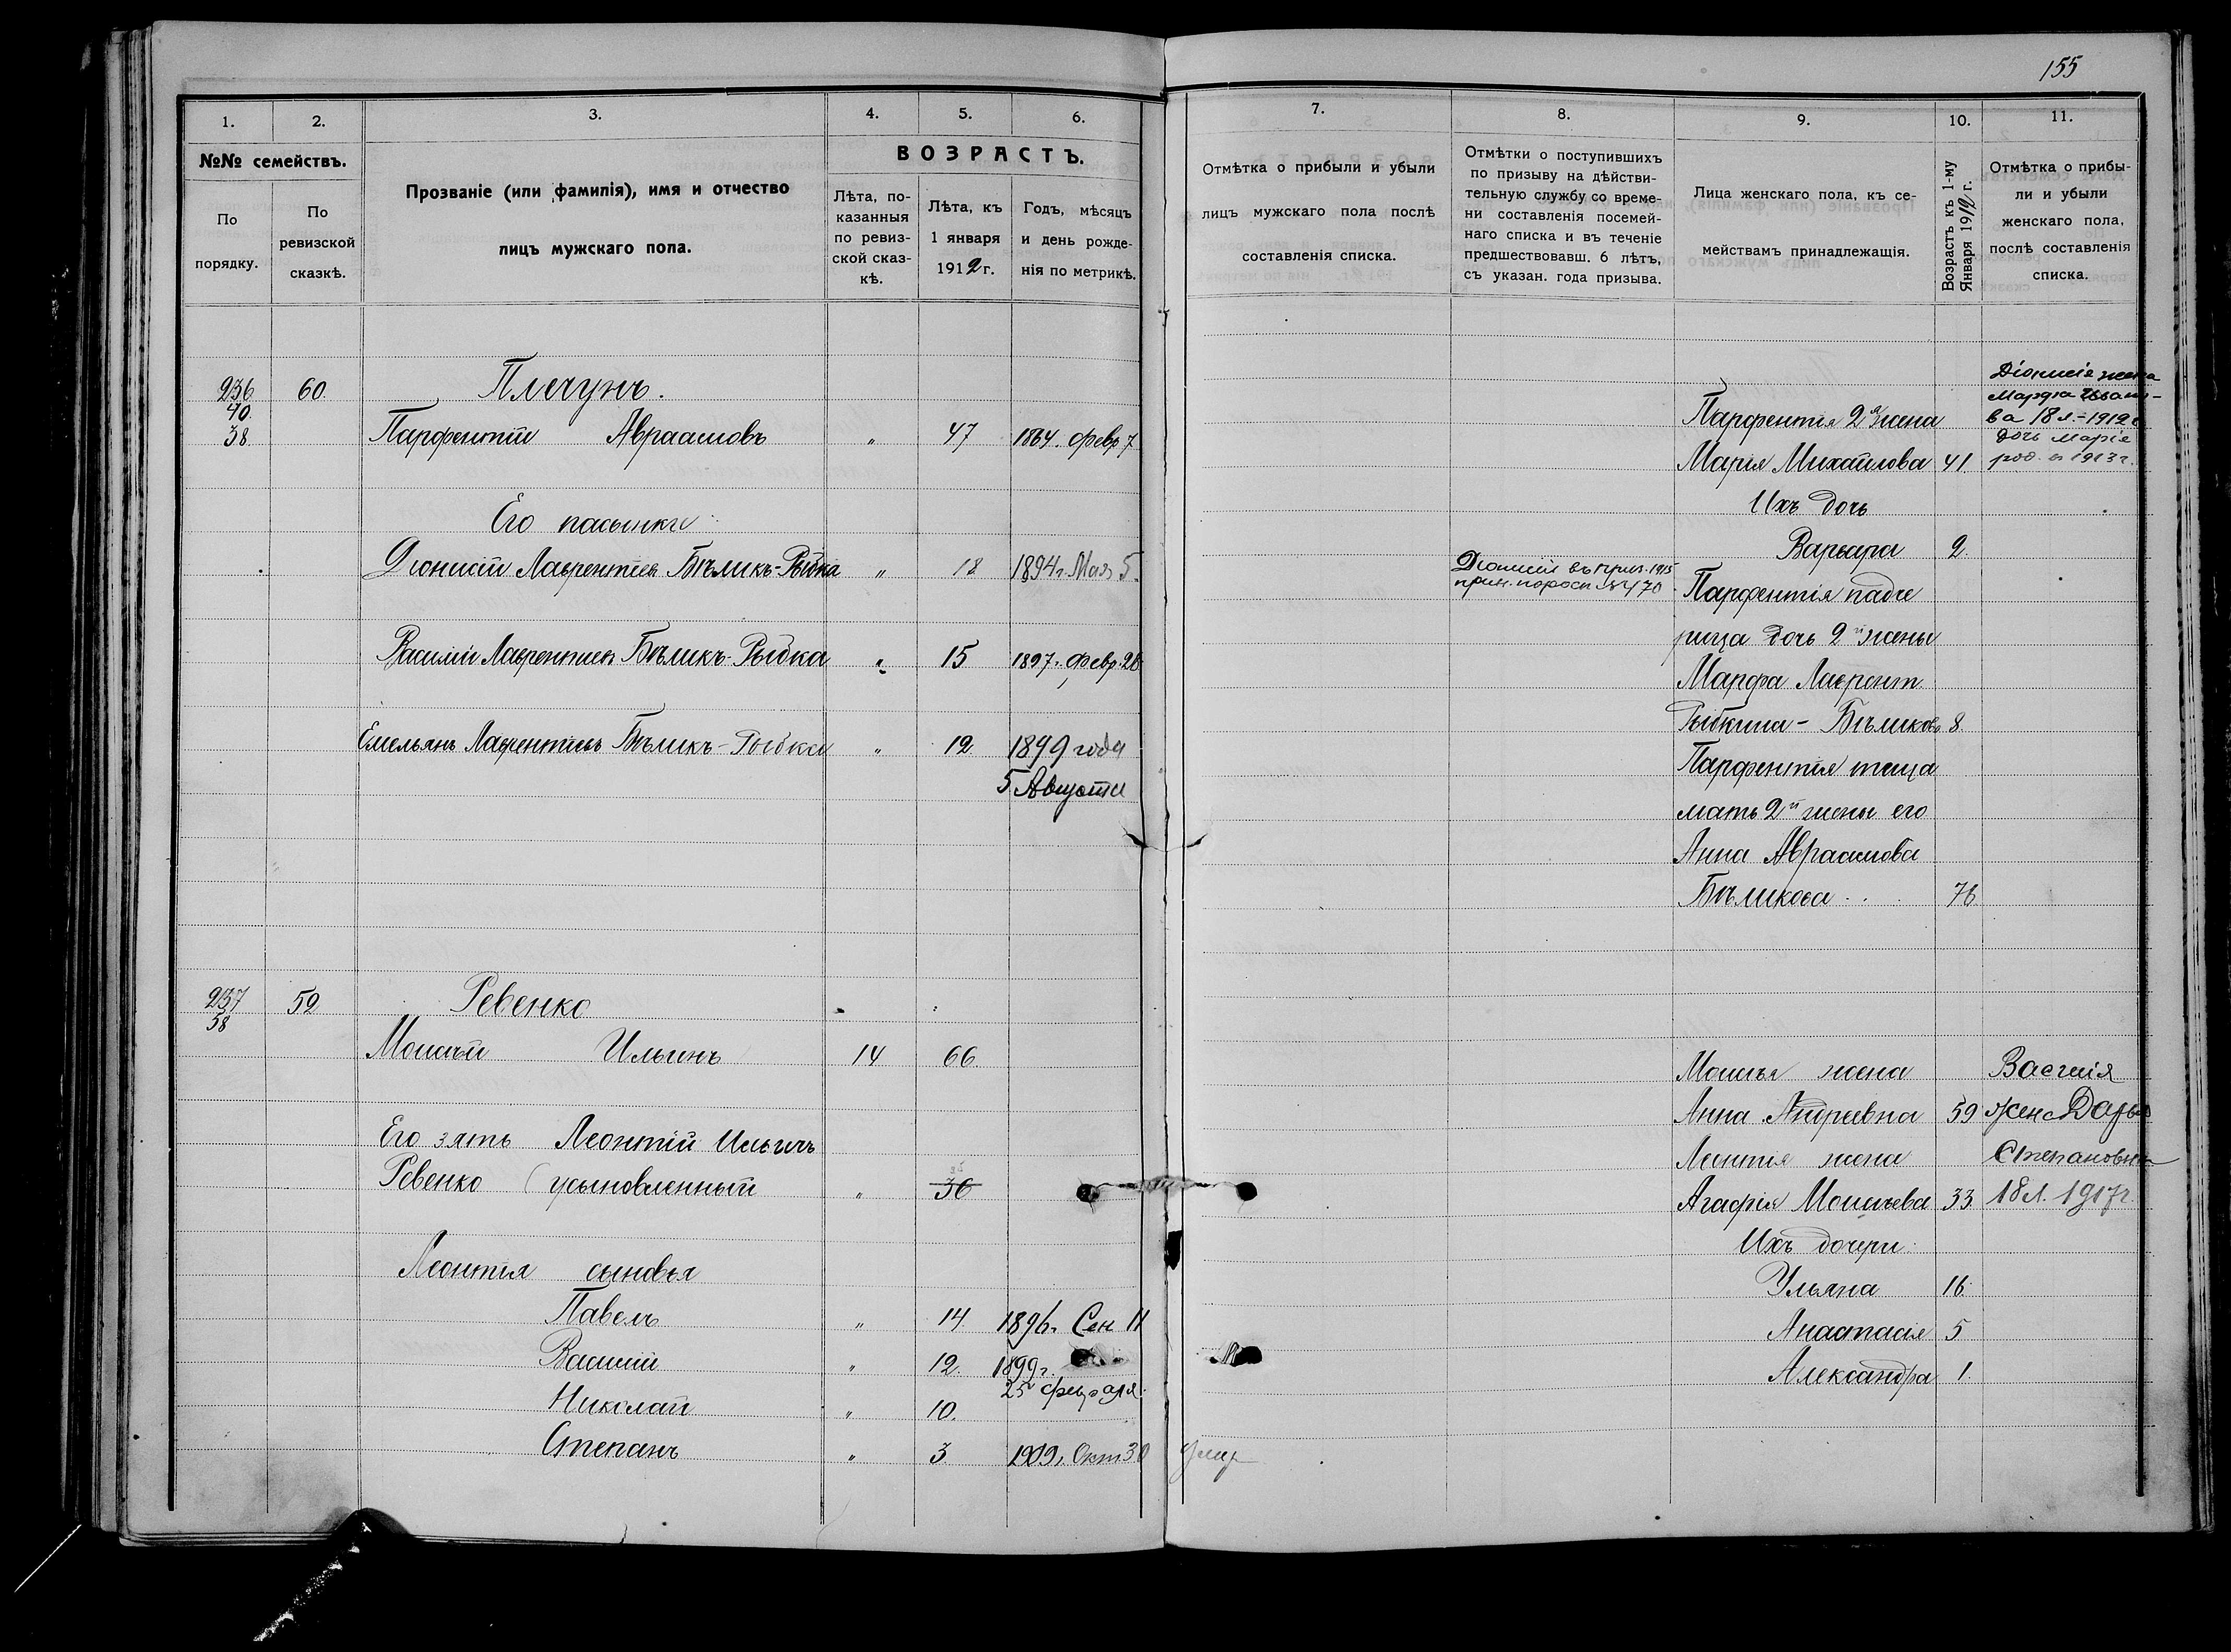 155
1.
2.
3.
4.
5.
6.
№№ семействъ.
По порядку.
По ревизской сказкѣ.
Прозваніе (или фамилія), имя и отчество
лицъ мужскаго пола.
ВОЗРАСТЪ.
Лѣта, по-
казанныя
по ревиз-
ской сказ-
кѣ.
Лѣта, къ
1 января
1912 г.
Годъ, мѣсяцъ
и день рожде-
нія по метрикѣ.
236 60. Плечунъ.
40
38. Парфентій Авраамовъ " 47 1864. Февр 7
Его пасынки
Діонисій Лаврентіевъ Бѣликъ-Рыбка " 18 1894 г. Мая 5.
Василій Лаврентіевъ Бѣликъ-Рыбка " 15 1897. Февр. 26
Емельянъ Лаврентіевъ Бѣликъ-Рыбка " 12 1899 года
5 Августа
237 52 Ревенко
58
Моисей Ильинъ 14 66
Его зять Леонтій Ильичъ
Ревенко (усыновленный " 36
Леонтія сыновья
Павелъ " 14 1896 г. Сен 11
Василій " 12. 1899 г.
25 февраля
Николай " 10.
Степанъ " 3 1909 г. Окт 30
7.
8.
9.
10.
11.
Отмѣтка о прибыли и убыли
лицъ мужскаго пола послѣ
составленія списка.
Отмѣтки о поступившихъ
по призыву на дѣйстви-
тельную службу со време-
ни составленія посемей-
наго списка и въ теченіе
предшествовавш. 6 лѣтъ,
съ указан. года призыва.
Лица женскаго пола, къ се-
мействамъ принадлежащія.
Возрастъ къ 1-му
Января 1912 г.
Отмѣтка о прибы-
ли и убыли
женскаго пола,
послѣ составленія
списка.
Діонисія жена
Марфа Ивано-
ва 18 л. - 1912 г
дочь Марія
род. в 1913 г.
Парфентія 2я жена
Марія Михайлова 41.
Ихъ дочь
Варвара 2
Діонисій въ приз. 1915
прин. по росп № 470
Парфентія падче
рица дочь 2й жены
Марфа Лаврент.
Рыбкина-Бѣликова 8.
Парфентія теща
мать 2й жены его
Анна Авраамова
Бѣликова . . . 76
Моисея жена
Анна Андреевна 59
Леонтія жена
Агафія Моисеева 33
Василія
жена Дарья
Степановна
18 л. 1917 г.
Ихъ дочери
Ульяна 16
Анастасія 5
Александра 1.
Умер